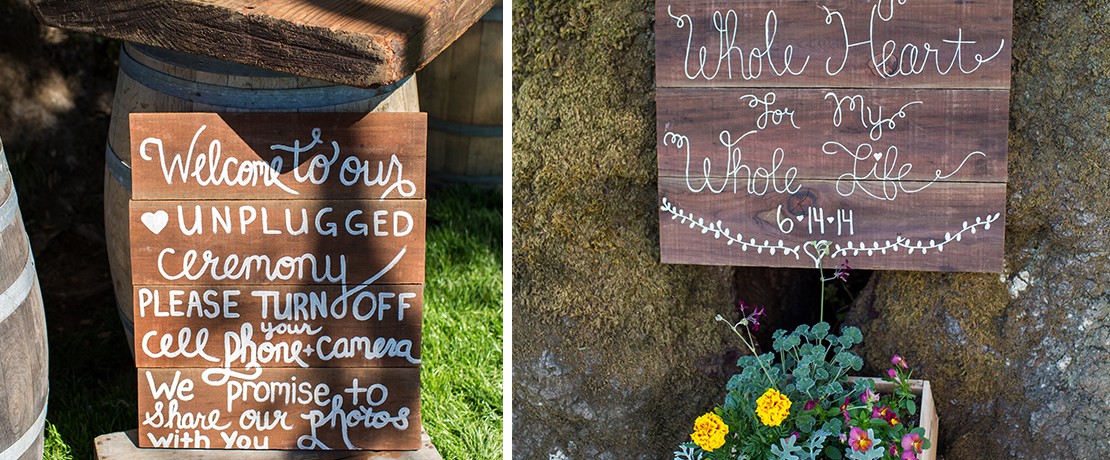 Welcome to our
UNPLUGGED
ceremony
PLEASE TURN OFF
your
cell phone + camera
We promise to
share our photos
with You
Whole Heart
for My
Whole Life
6•14•14